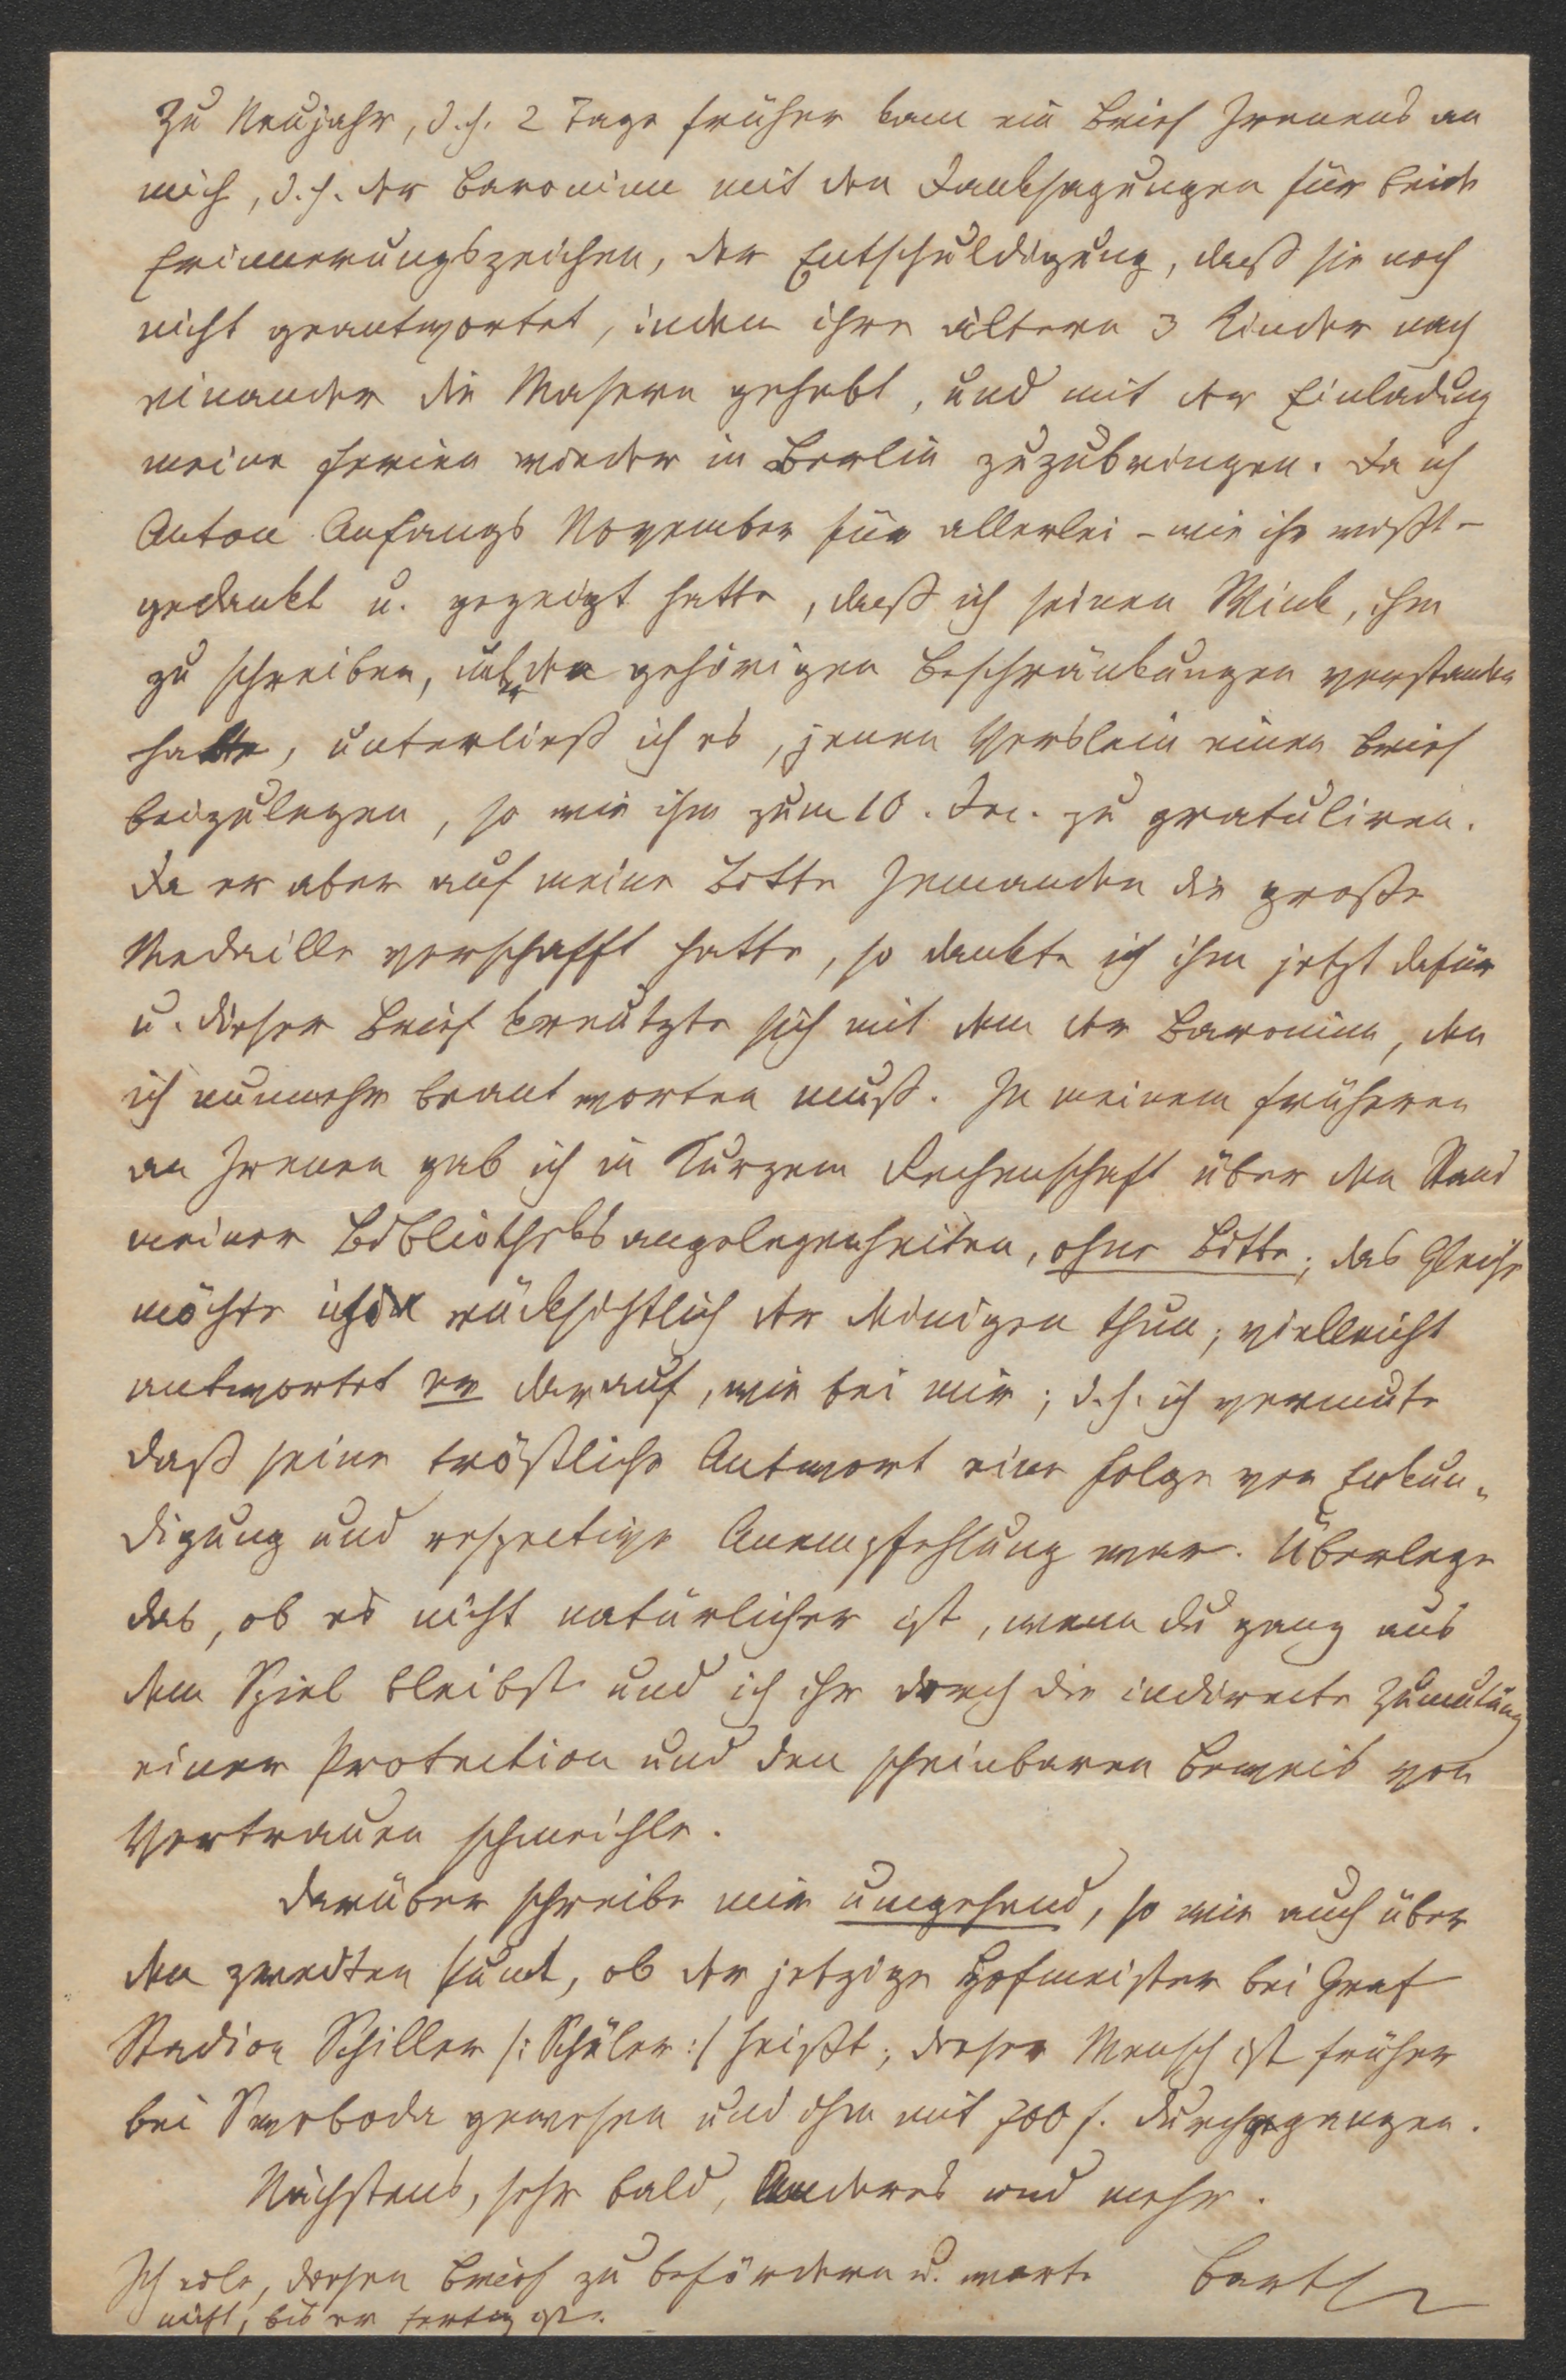 Zu Neujahr, d. h. 2 Tage früher kam ein Brief Irenens an
mich, d. h. der Baroninn mit den Danksagungen für beide
Erinnerungszeichen, der Entschuldigung, daß sie noch
nicht geantwortet, indem ihre ältern 3 Kinder nach
einander die Masern gehabt, und mit der Einladung
meine Ferien wieder in Berlin zuzubringen. Da ich
Anton Anfangs November für allerlei – wie ihr wißt –
gedankt u. gezeigt hatte, daß ich seinen Wink, ihm
zu schreiben, mit den gehörigen Beschränkungen verstanden
hatte, unterließ ich es, jenen Verslein einen Brief
beizulegen, so wie ihm zum 10. Dec. zu gratuliren.
Da er aber auf meine Bitte Jemanden die große
Medaille verschafft hatte, so dankte ich ihm jetzt dafür
u. dieser Brief kreutzte sich mit dem der Baroninn, den
ich nunmehr beantworten muß. In meinem früheren
an Irenen gab ich in Kurzem Rechenschaft über den Stand
meiner Bibliotheksangelegenheiten, ohne Bitte; das Gleiche
möchte ich rücksichtlich der Deinigen thun; vielleicht
antwortet er darauf, wie bei mir; d. h. ich vermute
daß seine tröstliche Antwort eine Folge von Erkun-
digung und respective Anempfehlung war. Überlege
das, ob es nicht natürlicher ist, wenn du ganz aus
dem Spiel bleibst und ich ihr durch die indirecte Zumutung
einer Protection und den scheinbaren Beweis von
Vertrauen schmeichle.
Darüber schreibe mir umgehend, so wie auch über
den zweiten Punct, ob der jetzige Hofmeister bei Graf
Stadion Schiller /: Schüler :/ heißt; dieser Mensch ist früher
bei Swoboda gewesen und ihm mit 700 f. durchgegangen.
Nächstens, sehr bald, Anderes und mehr.
Ich eile, diesen Brief zu befördern u. warte Barth
nicht, bis er fertig ist.